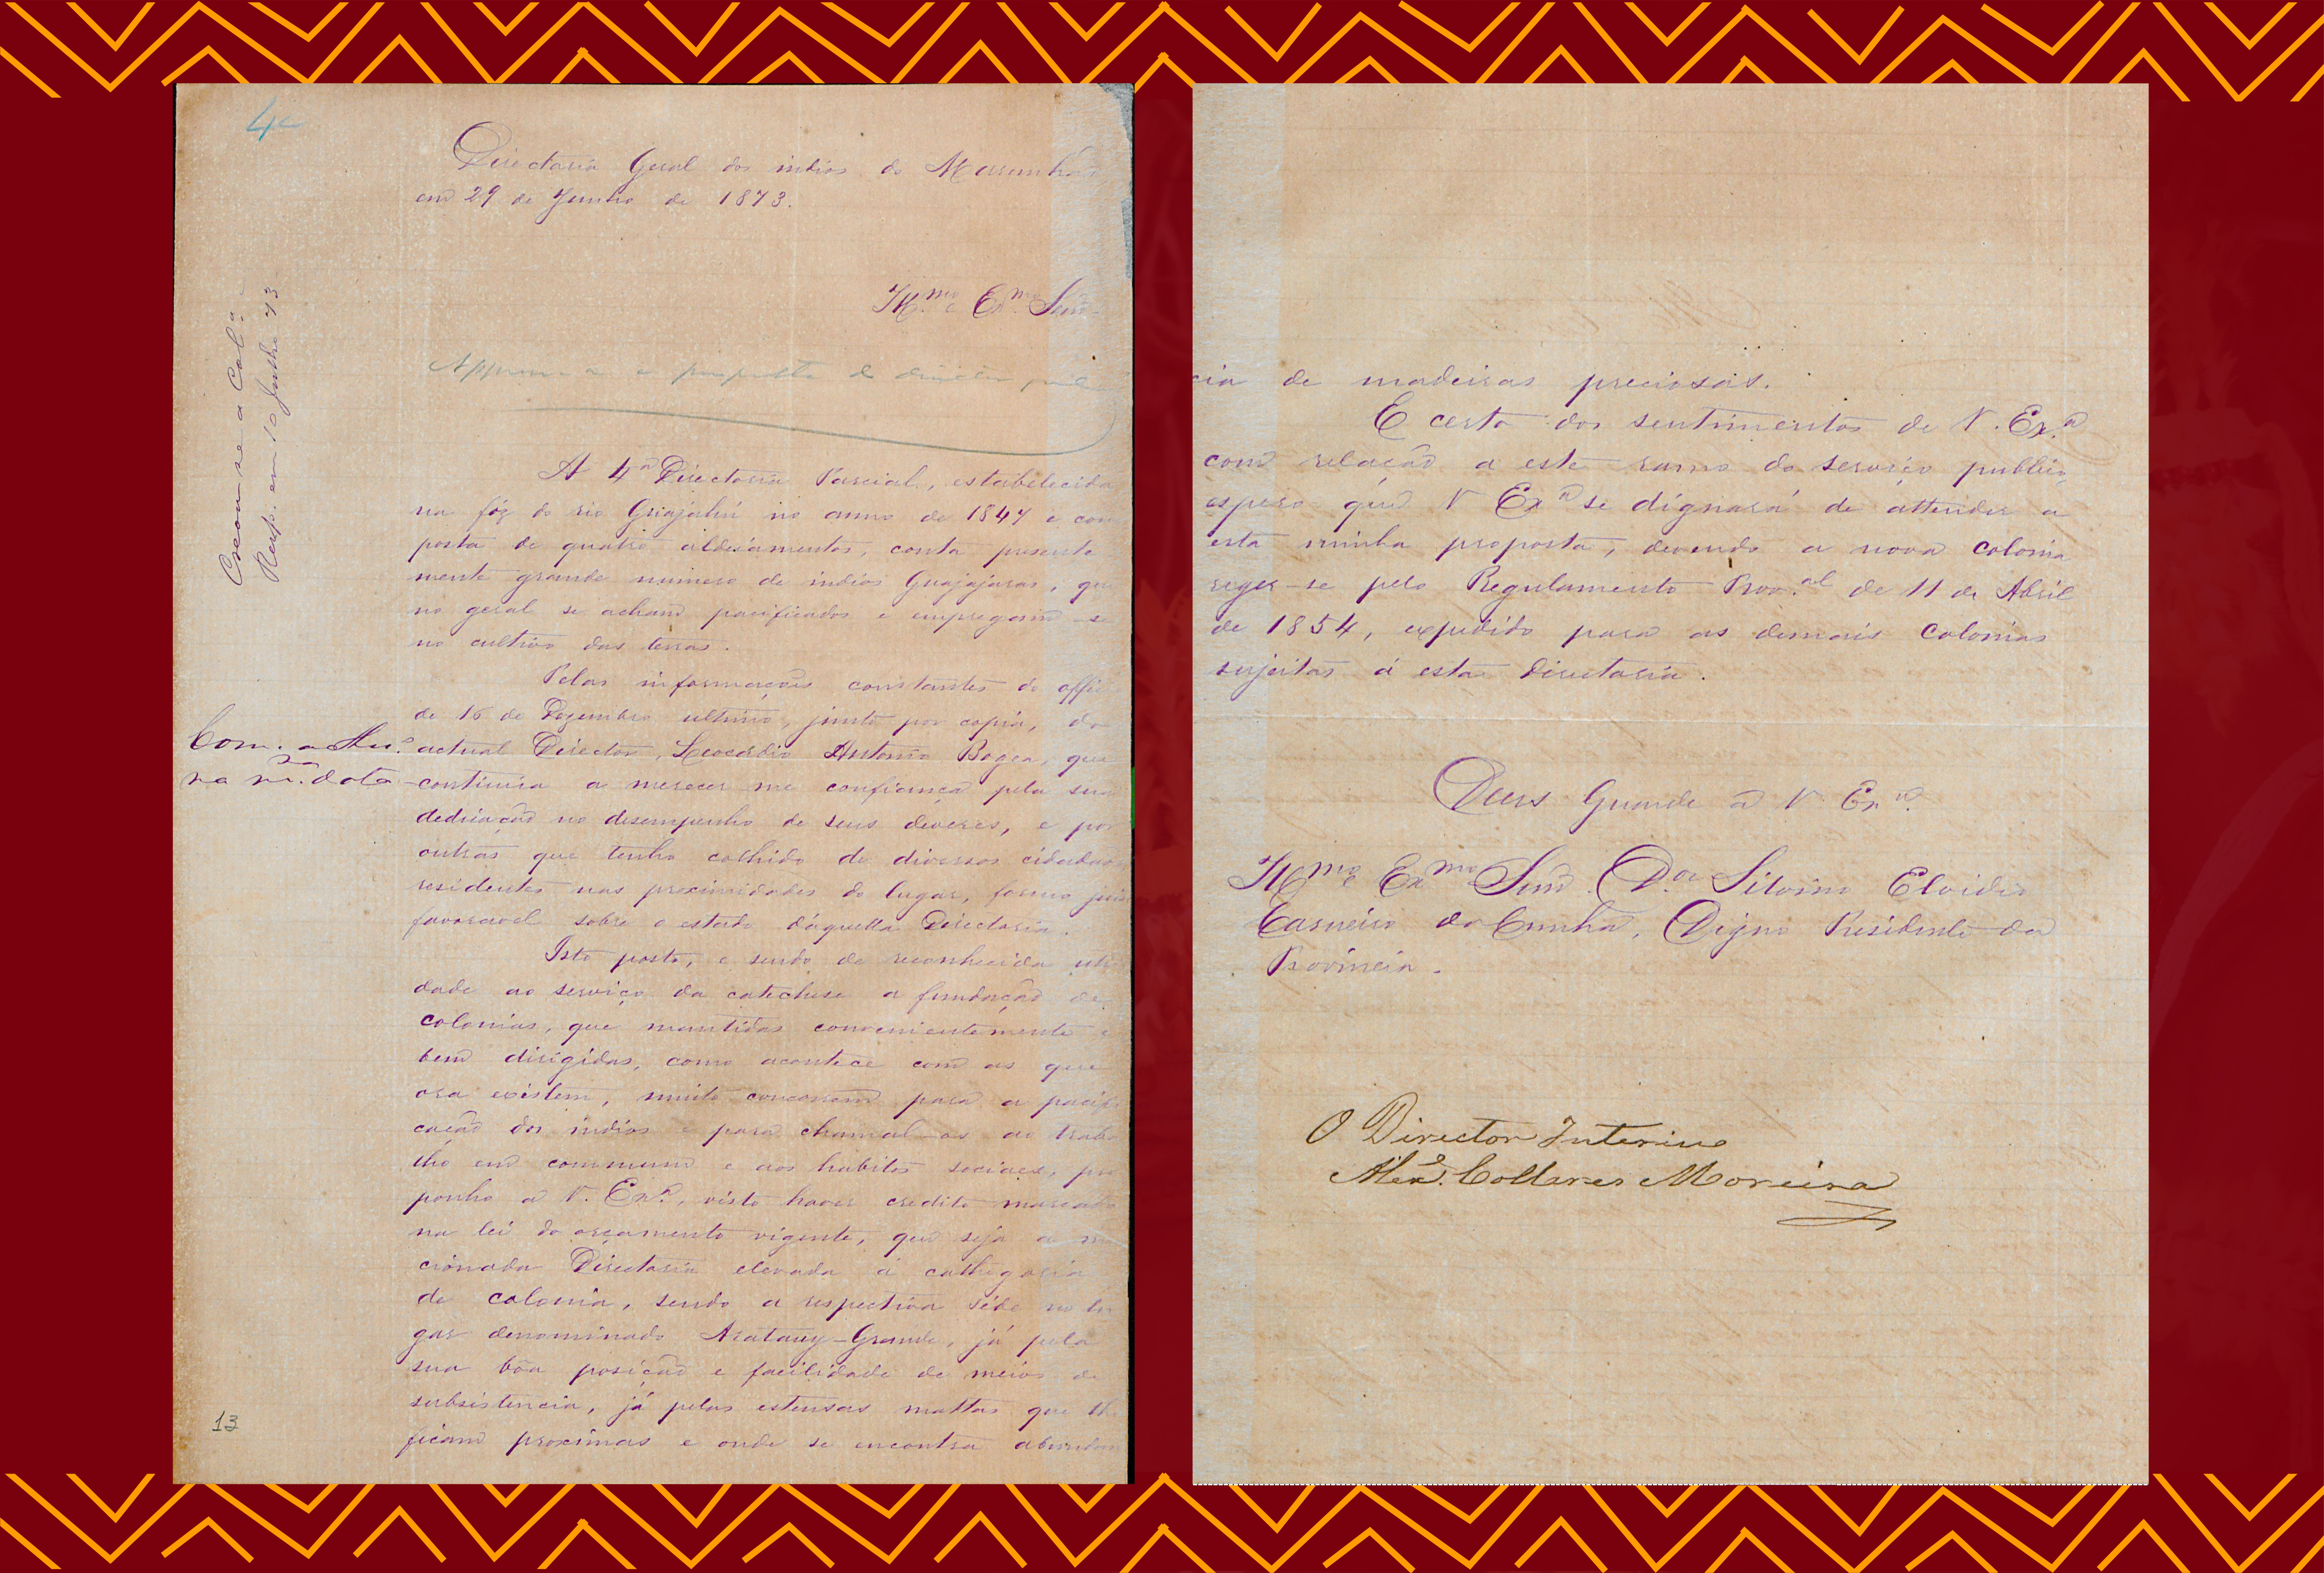 4ª
Directoria Geral dos indios do Maranhão
em 29 de Junho de 1873.
Illmo e Exmo Senr.
Approvo a proposta do director
Creou-se a Colª
Resp. em 10 Julho 73
A 4ª Directoria Parcial, estabelecida
na fóz do rio Grajahú no anno de 1847 e com
posta de quatro aldeiamentos, conta presente
mente grande numero de indios Guajajaras, que
no geral se acham pacificados e empregam-se
no cultivo das terras.
Pelas informações constantes do officio
de 16 de Dezembro ultimo, junto por copia, do
Com. a
na mª data
actual Director, Leocadio Antonio Bogea, que
continúa a merecer-me confiança pela sua
dedicação no desempenho de seus deveres, e por
outras que tenho colhido de diversos cidadãos
residentes nas proximidades do lugar, formo juizo
favoravel sobre o estado d'aquella Directoria.
Isto posto, e sendo de reconhecida utili
dade ao serviço da catechese a fundação de
colonias, que mantidas convenientemente e
bem dirigidas, como acontece com as que
ora existem, muito concorrem para a pacifi
cação dos indios e para chamal-os ao traba
lho em commum e aos habitos sociaes, pro
ponho a V. Exª, visto haver credito marcado
na lei do orçamento vigente, que seja a men
cionada Directoria elevada á cathegoria
de colonia, sendo a respectiva séde no lu
gar denominado Aratauy-Grande, já pela
sua bôa posição e facilidade de meios de
subsistencia, já pelas estensas mattas que lhe
ficam proximas e onde se encontra abundan
13
cia de madeiras preciosas.
E certo dos sentimentos de V. Exª
com relação a este ramo do serviço publico,
espero que V Exª se dignará de attender a
esta minha proposta, devendo a nova colonia
reger-se pelo Regulamento Prov.al de 11 de Abril
de 1854, expedido para as demais colonias
sujeitas á esta directoria.
Deus Guarde a V. Exª.
Illmo e Exmo Senr. Dor Silvino Elvidio
Carneiro da Cunha, Digno Presidente da
Provincia.
O Director Interino
Alexe. Collares Moreira